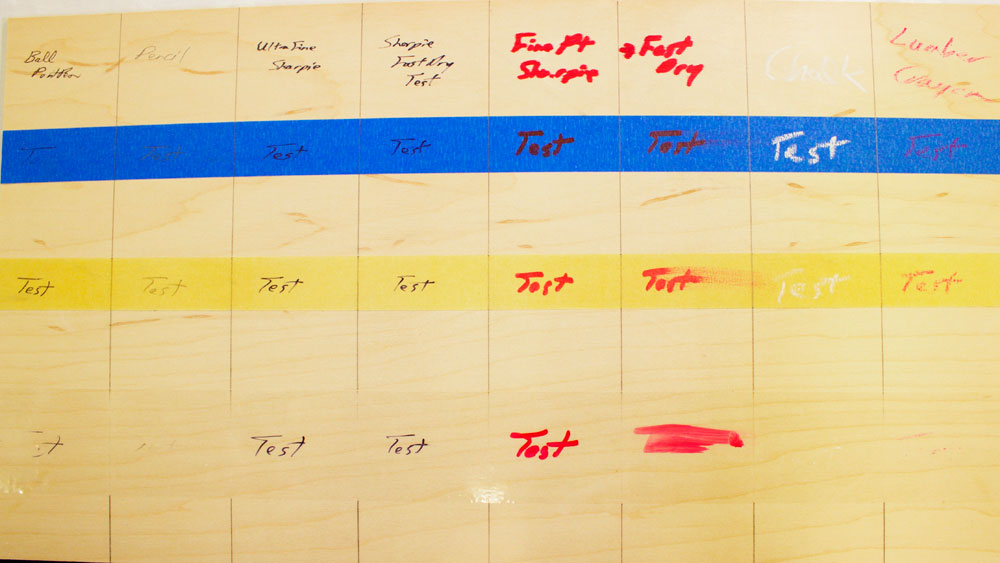 Ball
PontPen
Pencil
Ultra Fine
Sharpie
Sharpie
Fast Dry
Test
Fine Pt
Sharpie
→ Fast
Dry
Chalk
Lumber
Crayon
Test Test Test Test Test Test Test
Test Test Test Test Test Test Test Test
Test Test Test